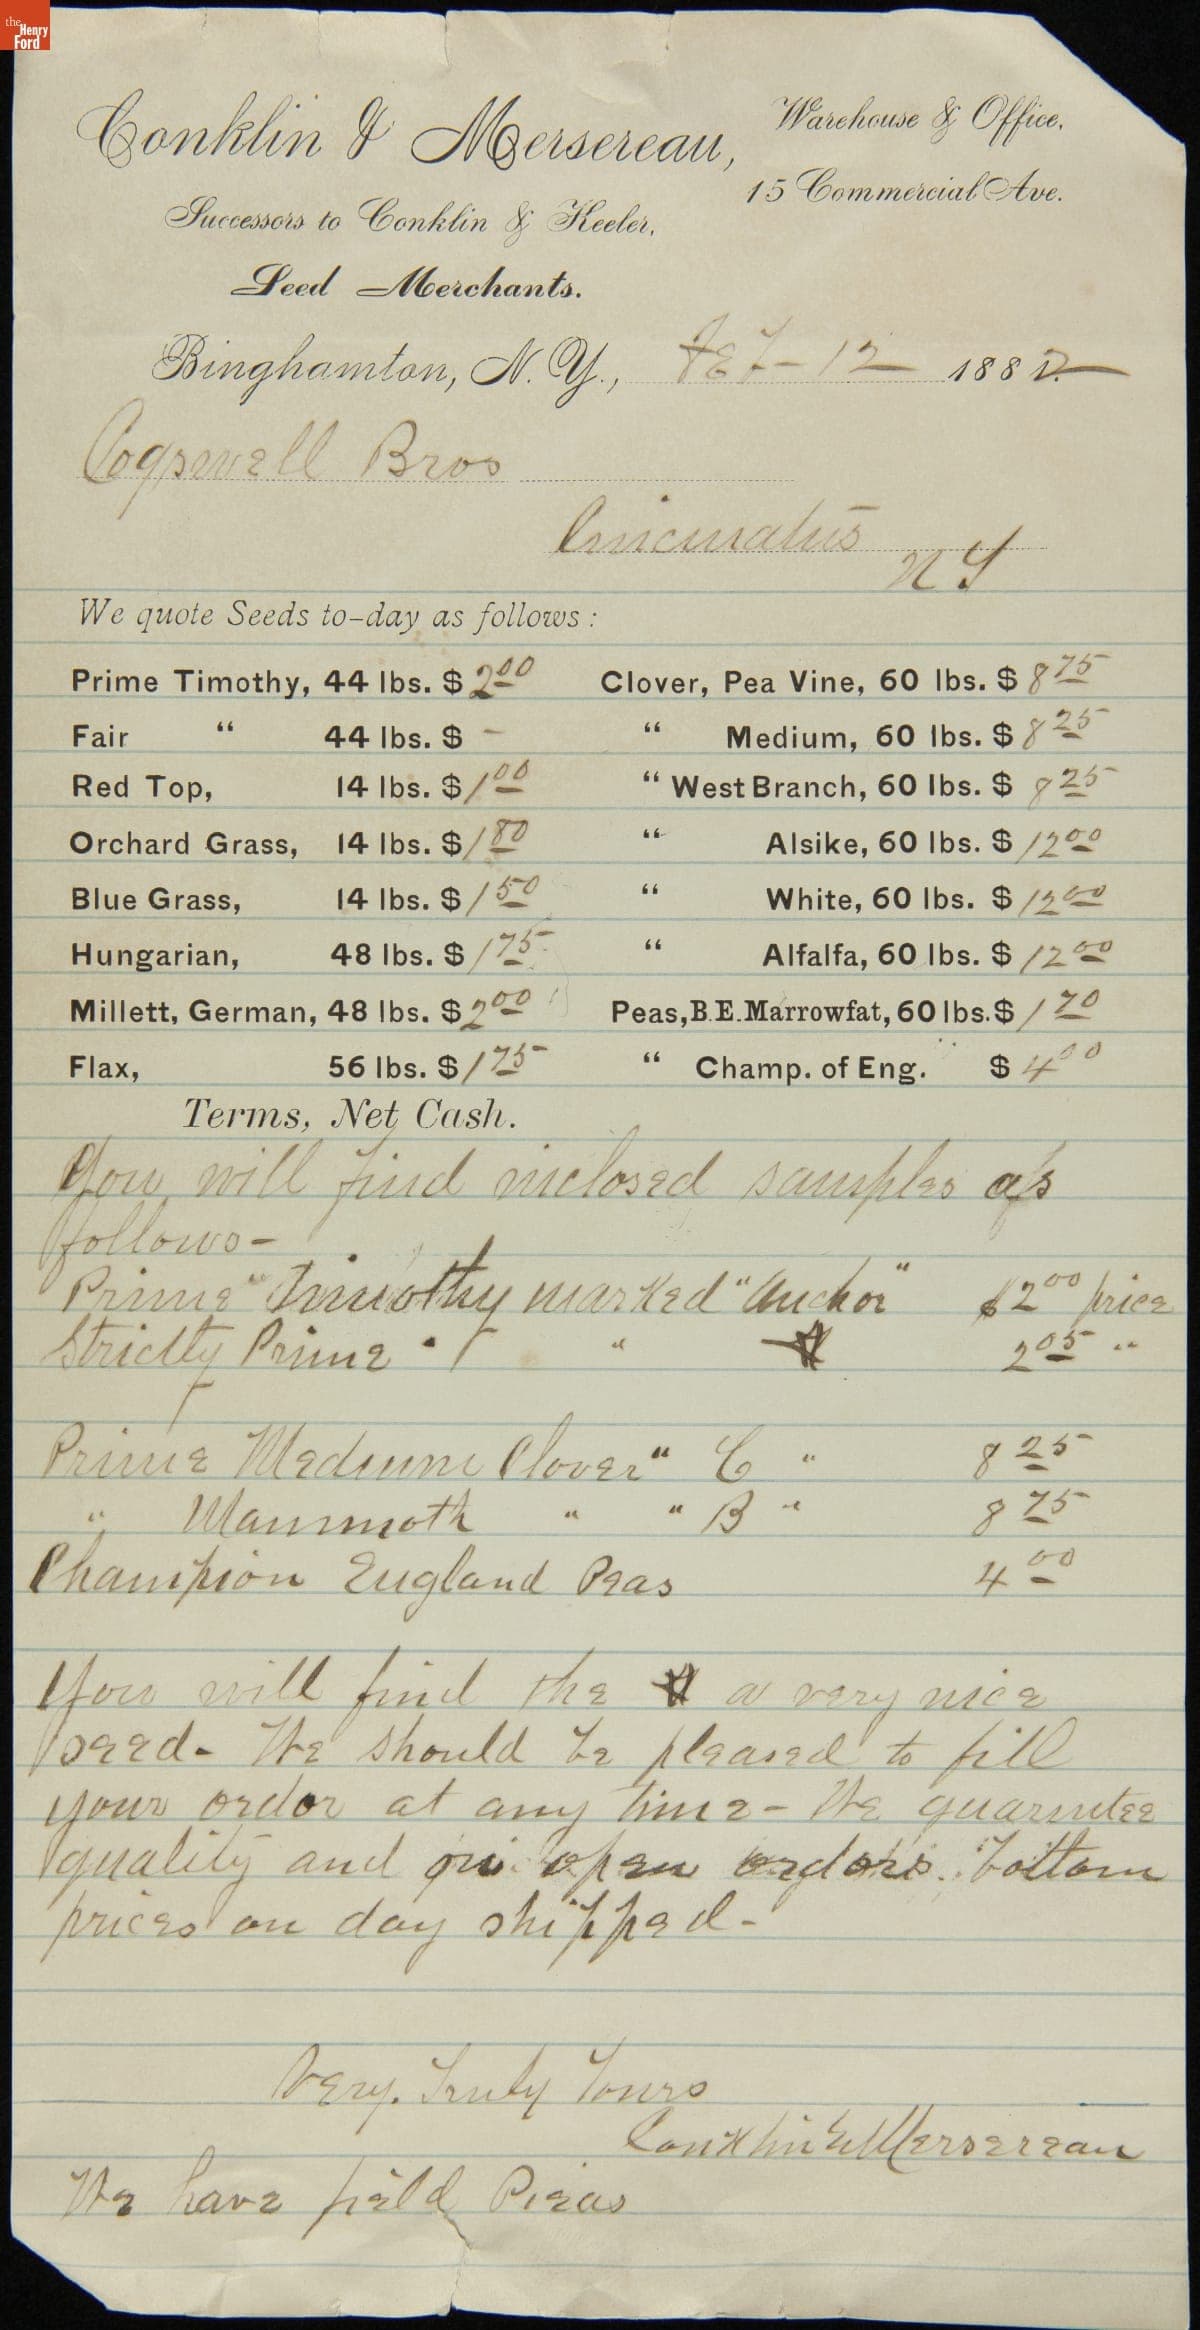 the Henry Ford
Conklin & Mersereau,
Warehouse & Office,
15 Commercial Ave.
Successors to Conklin & Keeler,
Seed Merchants.
Binghamton, N. Y., Feb - 12 1882
Cogswell Bros
Cincinatus
N Y
We quote Seeds to-day as follows:
Prime Timothy, 44 lbs. $ 2.00 Clover, Pea Vine, 60 lbs. $ 8 75
Fair " 44 lbs. $ - " Medium, 60 lbs. $ 8 25
Red Top, 14 lbs. $ 1 00 " West Branch, 60 lbs. $ 8 25
Orchard Grass, 14 lbs. $ 1 80 " Alsike, 60 lbs. $ 12 00
Blue Grass, 14 lbs. $ 1 50 " White, 60 lbs. $ 12 00
Hungarian, 48 lbs. $ 1 75 " Alfalfa, 60 lbs. $ 12 00
Millett, German, 48 lbs. $ 2 00 Peas, B.E. Marrowfat, 60 lbs. $ 1 70
Flax, 56 lbs. $ 1 75 " Champ. of Eng. $ 4 00
Terms, Net Cash.
You will find inclosed samples as
follows -
Prime Timothy marked "Anchor" $2 00 price
Strictly Prime " " ☆ 2 05 "
Prime Medium Clover " C " 8 25
" Mammoth " " B " 8 75
Champion England Peas 4 00
You will find the ☆ a very nice
seed - We should be pleased to fill
your order at any time - We guarntee
quality and on open orders bottom
prices on day shipped -
Very Truly Yours
Conklin & Mersereau
We have field Pieas